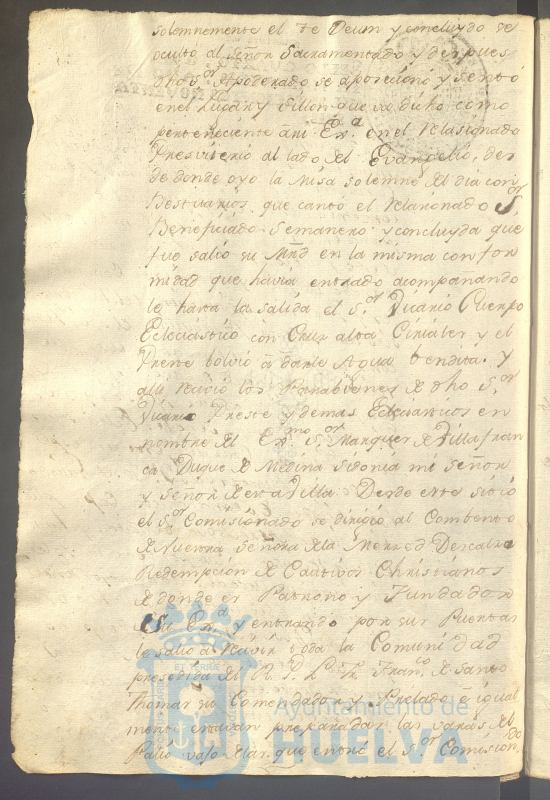 solemnemente el Te Deum y concluydo se
ocultó al Señor Sacramentado y despues
dho Sor Apoderado se aposecionó y sentó
en el lugar y sillon que se dicho como
perteneciente a mi Exa en el relasionado
Presviterio al lado del Evangelio, des
de donde oyo la Misa solemne del dia con
Bestuarios que cantó el relacionado Sor
Beneficiado Semanero y concluyda que
fue salió su Mrd en la misma confor
midad que havia entrado acompañando
le hasta la salida el Sor Vicario Cuerpo
Eclesiastico con Cruz alta Ciriales y el
Preste bolvió a darle Agua bendita. Y
alli recivió los Parabienes de dho Sor
Vicario Preste y demas Eclesiasticos en
nombre del Exmo Sor Marques de Villafran
ca Duque de Medina Sidonia mi Señor
y Señor de esta Villa. Desde este sitio
el Sor Comisionado se dirigió al Combento
de Nuestra Señora de la Merced Descalza
Redempcion de Cautivos Christianos
de donde es Patrono y Fundador
Su Exa y entrando por sus Puertas
le salió a recivir toda la Comunidad
presedida del R. P. L. Fr. Franco de Santo
Thomas su Comendador y Prelado e igual
mente estavan preparadas las varas del
Palio vajo del qe. entró el Sor Comisiondo
Ayuntamiento de
HUELVA